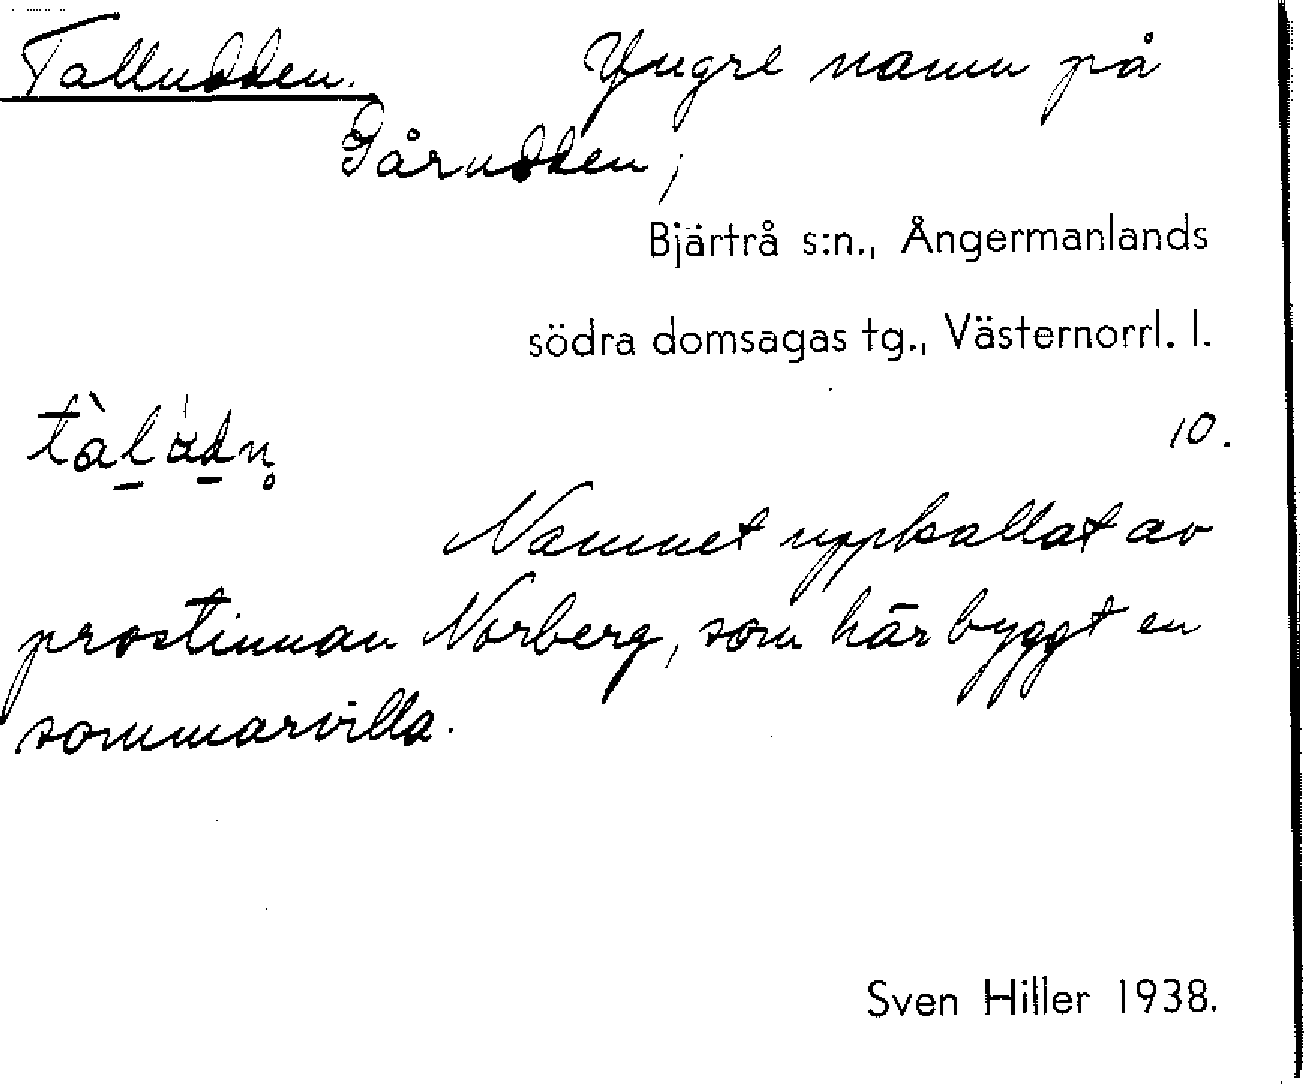 Talludden. Yngre namn på
Gårudden,
Bjärtrå s:n., Ångermanlands
södra domsagas tg., Västernorrl. l.
10.
Namnet uppkallat av
prostinnan Norberg, som här byggt en
sommarvilla.
Sven Hiller 1938.